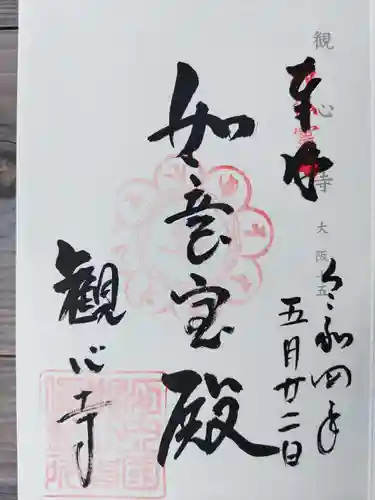 観心寺 大阪十五
奉拝
令和四年
五月廿二日
如意宝殿
観心寺